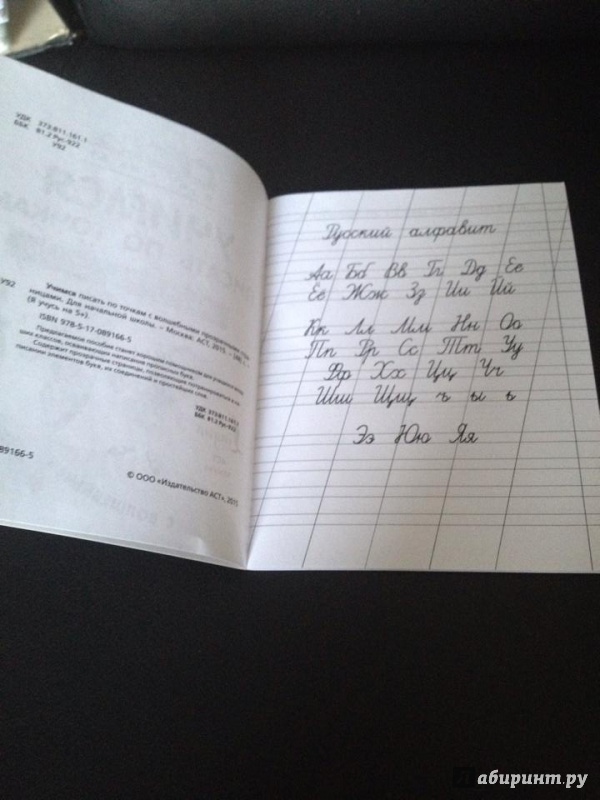 УДК 373:811.161.1
ББК 81.2 Рус-922
У92
У92
Учимся писать по точкам с волшебными прозрачными стра-
ницами. Для начальной школы. – Москва: АСТ, 2015.
(Я учусь на 5+).
ISBN 978-5-17-089166-5
Предлагаемое пособие станет хорошим
ших классов, осваивающих написание прописных букв.
Содержит прозрачные страницы, позволяющие потренироваться в на-
писании элементов букв, их соединений и простейших слов.
УДК 373:811.161.1
ББК 81.2 Рус-922
89166-5
© ООО «Издательство АСТ», 2015
Русский алфавит
Аа Бб Вв Гг Дд Ее
Ее Жж Зз Ии Йй
Кк Лл Мм Нн Оо
Пп Рр Сс Тт Уу
Фф Хх Цц Чч
Шш Щщ ъ ы ь
Ээ Юю Яя
Лабиринт.ру